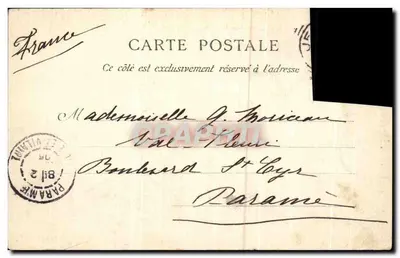 France
CARTE POSTALE
Ce côté est exclusivement réservé à l'adresse
Mademoiselle G. Moriceau
Val Fleuri
Boulevard St Cyr
Paramé
PARAMÉ